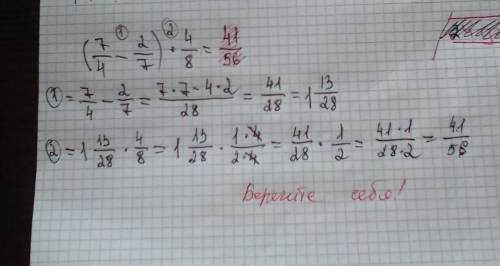 (7/4 -① 2/7) ·② 4/8 = 41/56
① = 7/4 - 2/7 = 7·7-4·2/28 = 41/28 = 1 13/28
② = 1 13/28 · 4/8 = 1 13/28 · 1·4/2·4 = 41/28 · 1/2 = 41·1/28·2 = 41/56
Берегите себя!